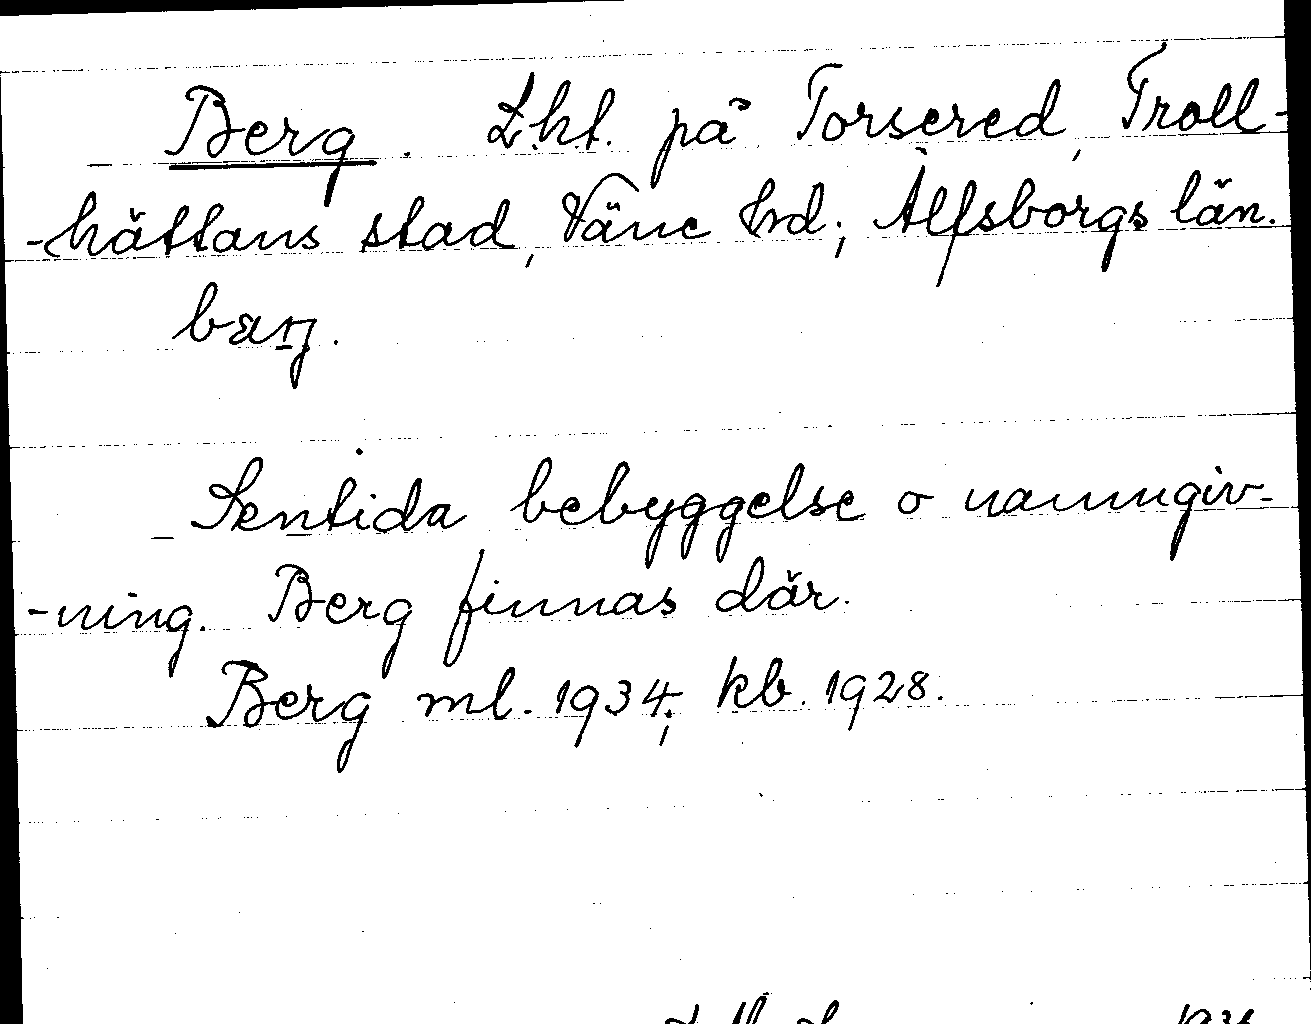 Berg. Lht. på Torsered, Troll-
-hättans stad, Väne hrd; Älfsborgs län.
Sentida bebyggelse o namngiv-
-ning. Berg finnas där.
Berg ml. 1934; kb. 1928.